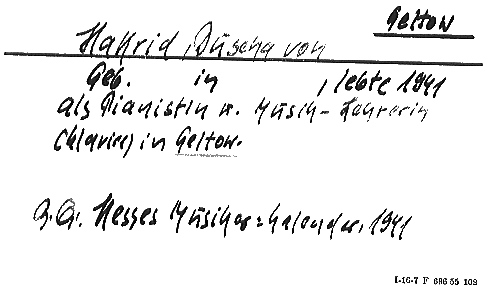 Geltow
Hakrid, Duscha von
Geb. in , lebte 1941
als Pianistin u. Musik-Lehrerin
(Klavier) in Geltow.
Hesses Musiker=Kalender, 1941
I-16-7 F 686 55 109